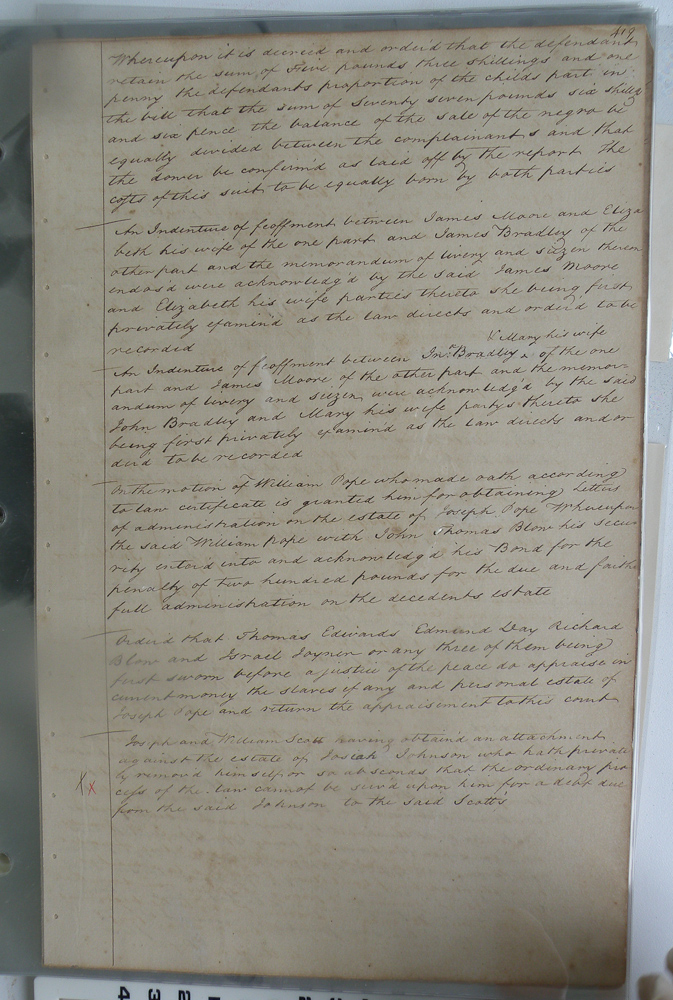 419
Whereupon it is decreed and orderd that the defendant
retain the sum of Five pounds three shillings and one
penny the defendants proportion of the childs part in
the bill that the sum of seventy seven pounds six shillgs
and six pence the balance of the sale of the negro be
equally divided between the complainants and that
the dower be confirm'd as laid off by the report The
costs of this suit to be equally born by both parties
An Indenture of feoffment between James Moore and Eliza
beth his wife of the one part and James Bradley of the
other part and the memorandum of livery and siezen thereon
endos'd were acknowledg'd by the said James Moore
and Elizabeth his wife parties thereto she being first
privately examind as the law directs and order'd to be
recorded
& Mary his wife
An Indenture of feoffment between Jnº Bradley ^ of the one
part and James Moore of the other part and the memor
andum of livery and siezen were acknowledg'd by the said
John Bradley and Mary his wife partys thereto she
being first privately examind as the law directs and or
derd to be recorded
On the motion of William Pope who made oath according
to law certificate is granted him for obtaining letters
of administration on the estate of Joseph Pope Whereupon
the said William Pope with John Thomas Blow his secu
rity enterd into and acknowledg'd his Bond for the
penalty of two hundred pounds for the due and faith
full administration on the decedents estate
Orderd that Thomas Edwards Edmund Day Richard
Blow and Israel Joyner or any three of them being
first sworn before a justice of the peace do appraise in
current money the slaves if any and personal estate of
Joseph Pope and return the appraisement to this court
Joseph and William Scott having obtaind an attachment
against the estate of Josiah Johnson who hath private
ly remov'd himself or so absconds that the ordinary pro
cess of the law cannot be serv'd upon him for a debt due
from the said Johnson to the said Scotts
X x
4 3 2